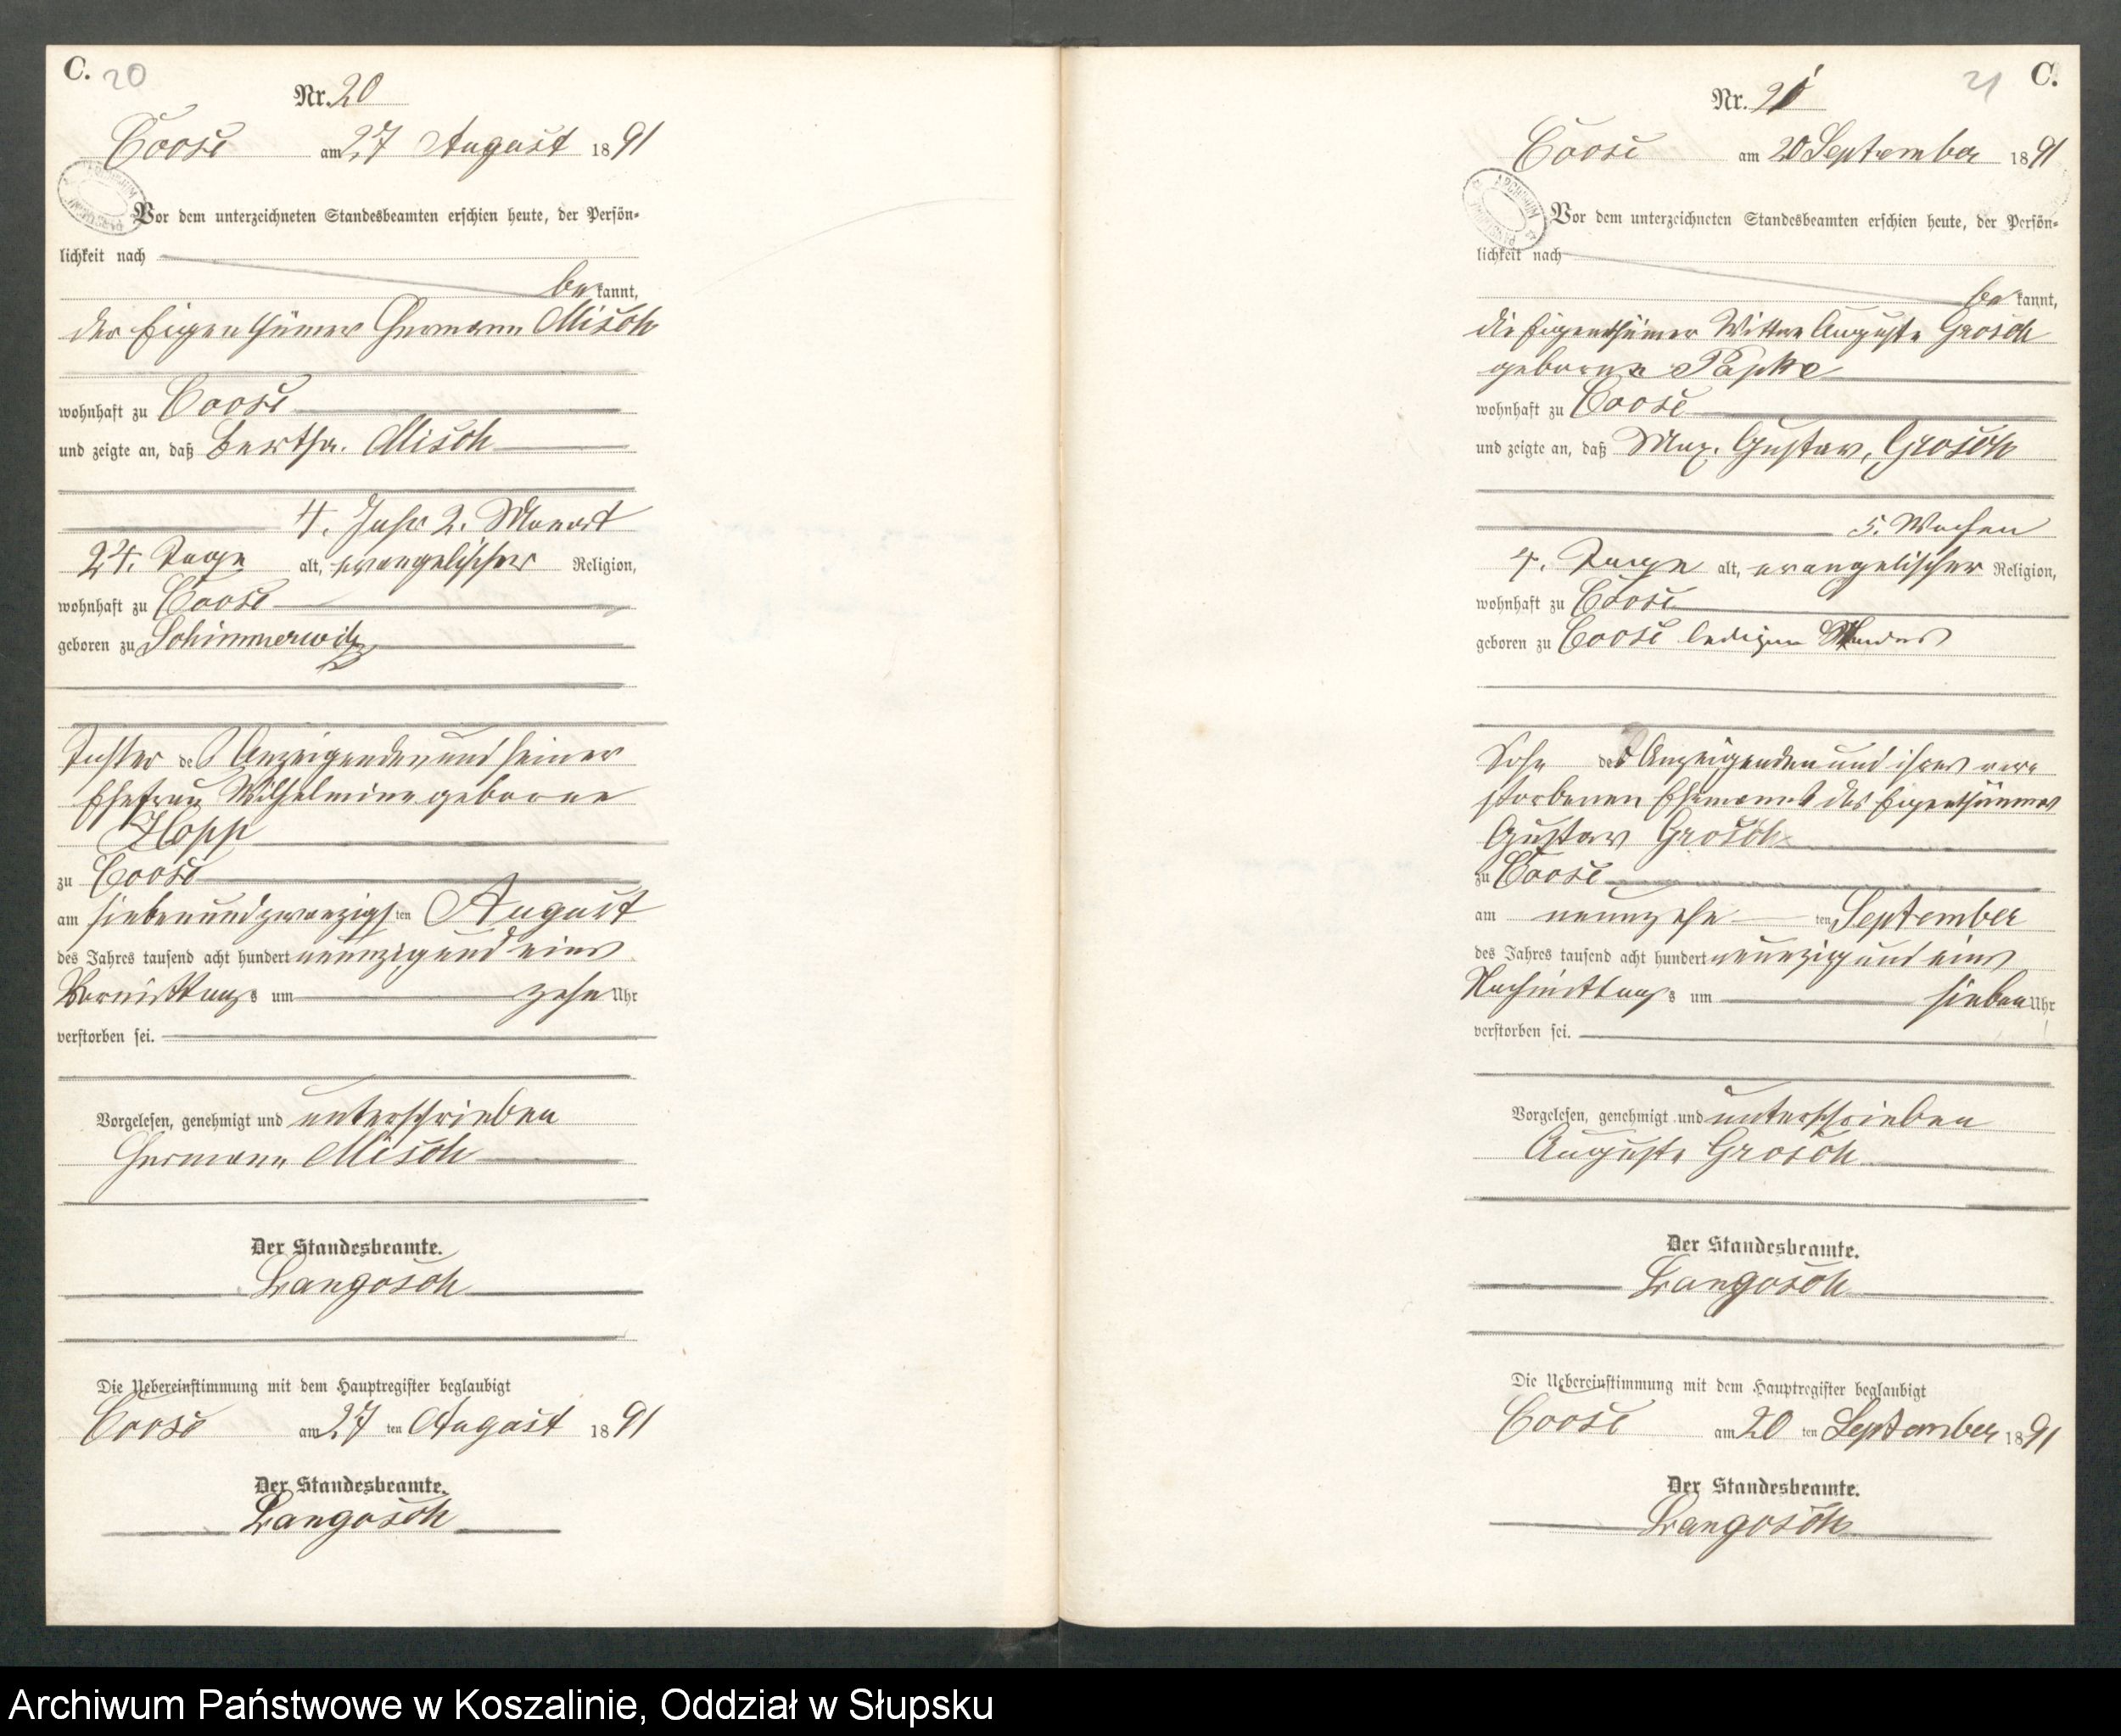 C. 20
Nr. 20
Coose am 27 August 1891
Vor dem unterzeichneten Standesbeamten erschien heute, der Persön-
lichkeit nach
be kannt,
der Eigenthümer Hermann Misch
wohnhaft zu Coose
und zeigte an, daß Bertha Misch
4. Jahr 2. Monat
24. Tage alt, evangelischer Religion,
wohnhaft zu Coose
geboren zu Schimmerwitz
Tochter des Anzeigenden und seiner
Ehefrau Wilhelmine geborne
Hopp
zu Coose
am siebenundzwanzigsten August
des Jahres tausend acht hundert neunzig und eins
Vormittags um zehn Uhr
verstorben sei.
Vorgelesen, genehmigt und unterschrieben
Hermann Misch
Der Standesbeamte.
Langosch
Die Uebereinstimmung mit dem Hauptregister beglaubigt
Coose am 27 ten August 1891
Der Standesbeamte.
Langosch
21 C.
Nr. 21
Coose am 20 September 1891
Vor dem unterzeichneten Standesbeamten erschien heute, der Persön-
lichkeit nach
be kannt,
die Eigenthümer Wittwe Auguste Grosch
geborne Papke
wohnhaft zu Coose
und zeigte an, daß Max. Gustav, Grosch
5. Wochen
4. Tage alt, evangelischer Religion,
wohnhaft zu Coose
geboren zu Coose ledigen Standes
Sohn der Anzeigenden und ihres ver-
storbenen Ehemannes des Eigenthümers
Gustav Grosch
zu Coose
am neunzehn ten September
des Jahres tausend acht hundert neunzig und eins
Nachmittags um sieben Uhr
verstorben sei.
Vorgelesen, genehmigt und unterschrieben
Auguste Grosch
Der Standesbeamte.
Langosch
Die Uebereinstimmung mit dem Hauptregister beglaubigt
Coose am 20 ten September 1891
Der Standesbeamte.
Langosch
Archiwum Państwowe w Koszalinie, Oddział w Słupsku